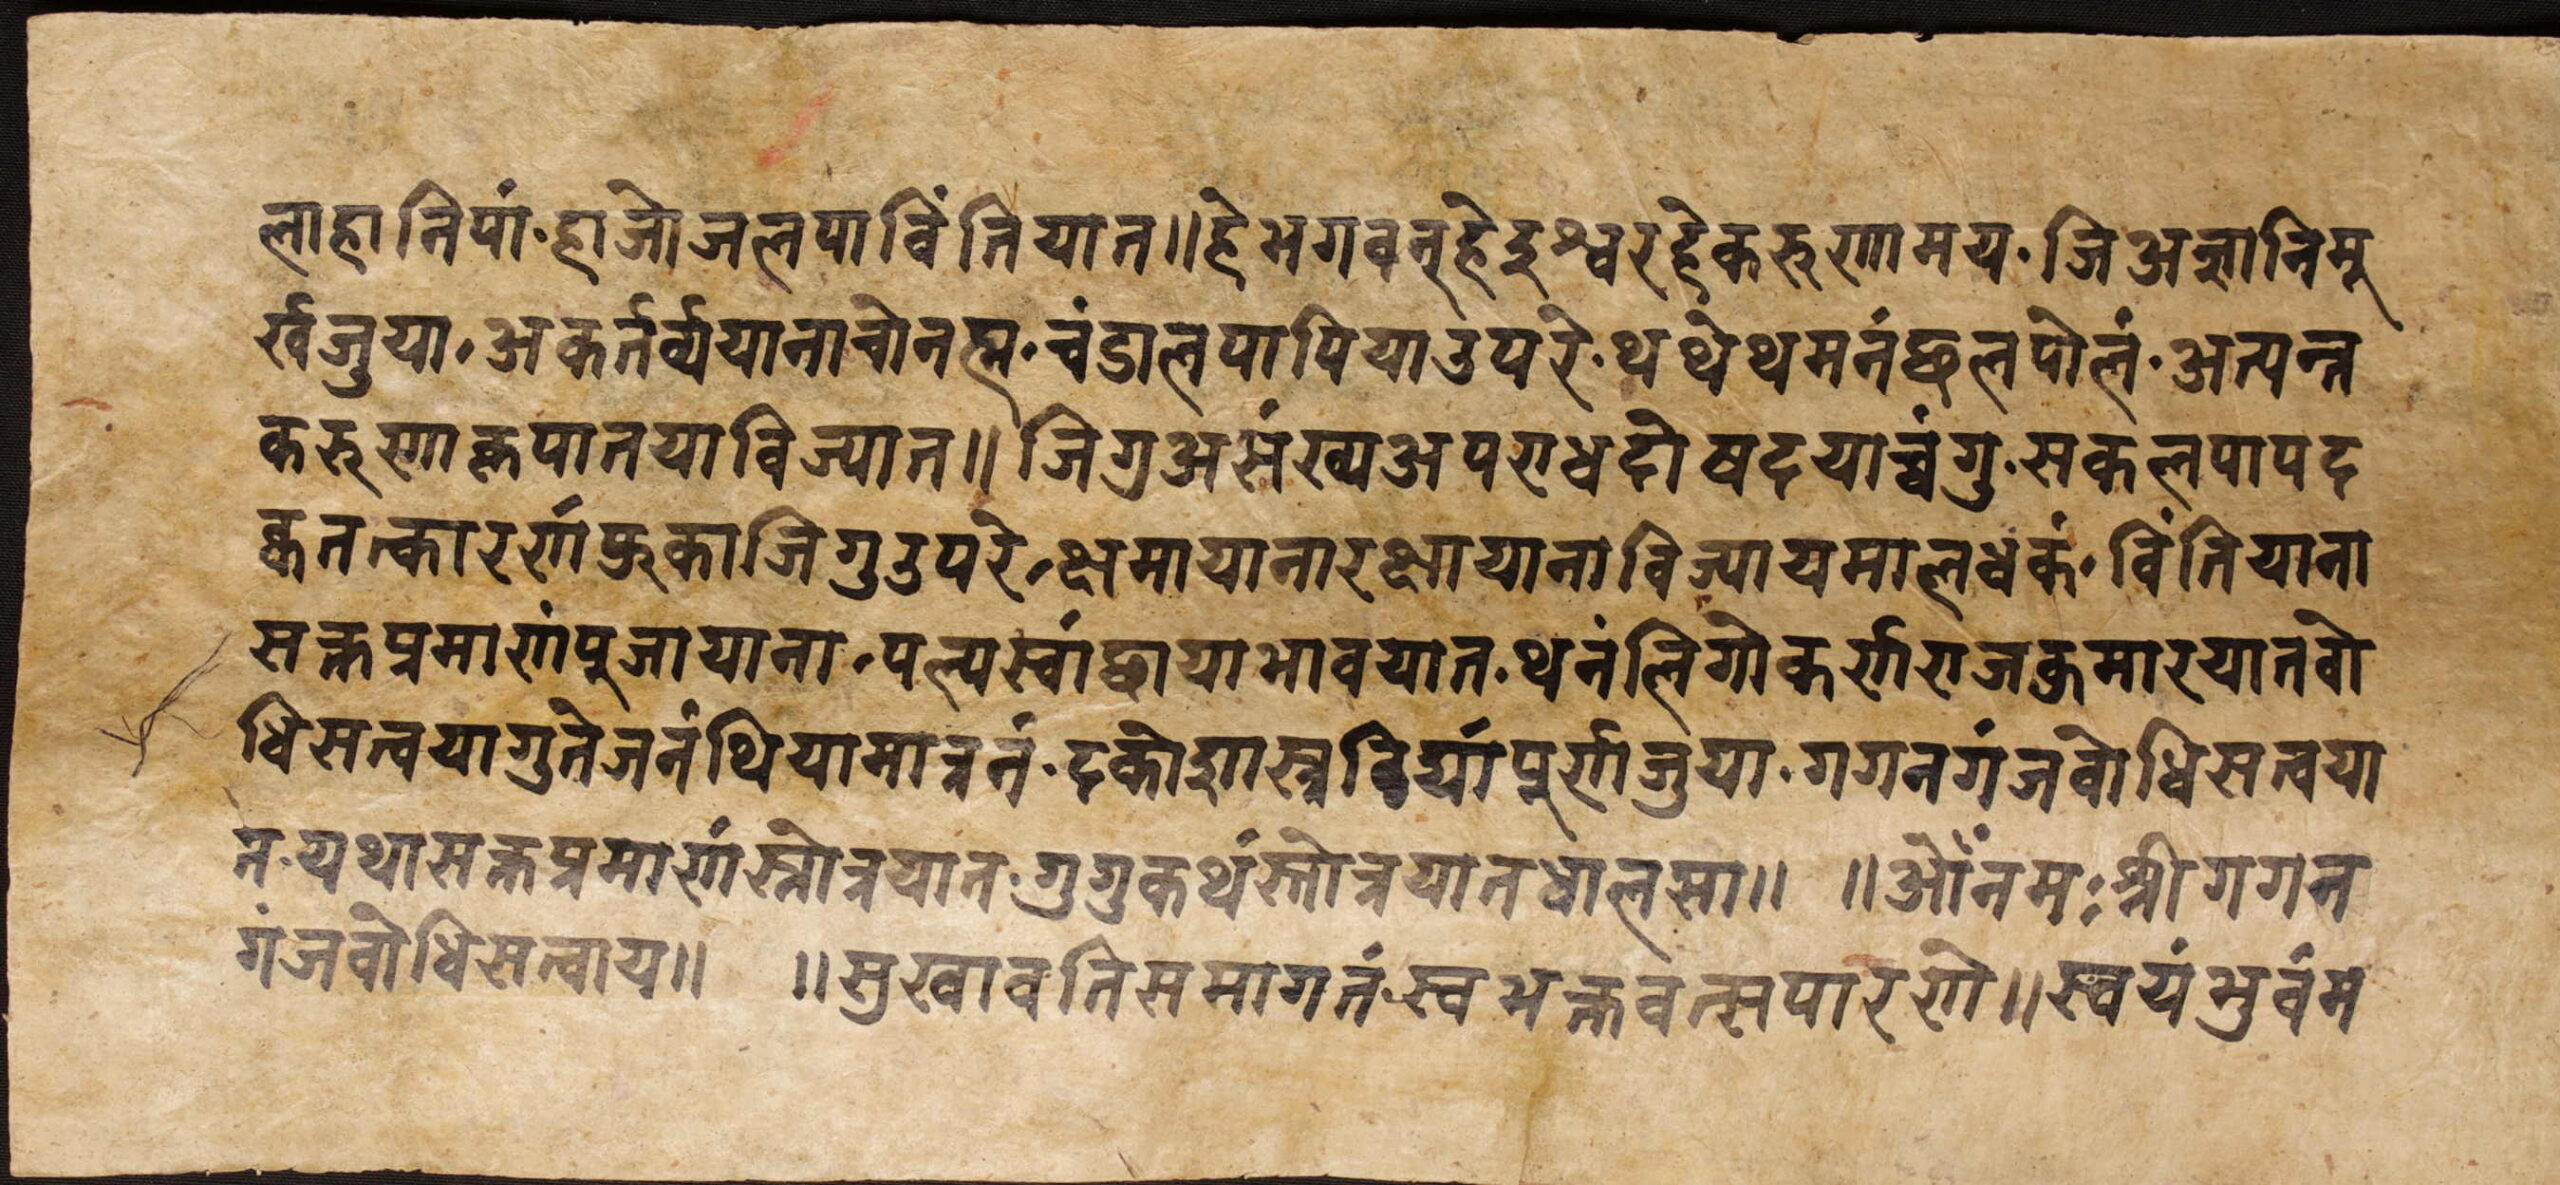 लाहानिपां·हाजोजलपाविंतियात॥हेभगवन्हेइश्वरहेकरुणामय·जिअज्ञानिमू
र्खजुया·अकर्तर्व्ययानाचोनह्म·चंडालपापियाउपरे·थथेथमनंछलपोलं·अत्यन्त
करुणाकृपातयाविज्यात॥जिगुअसंख्यअपराधदोषदयाच्वंगु·सकलपापद
क्वतत्कारर्णंफुकाजिगुउपरे·क्षमायानारक्षायानाविज्यायमालधकं·विंतियाना
सक्तप्रमाणंपुजायाना·पल्यस्वांछायाभावयात·थनंलिगोकर्णराजकुमारयातवो
धिसत्वयागुतेजनंथियामात्रनं·दकोशास्त्रविर्द्यांपुर्णजुया·गगनगंजवोधिसत्वया
त·यथासक्तप्रमाणंस्तोत्रयात·गुगुकथंस्तोत्रयातधालसा॥ ॥ओँनमःश्रीगगन
गंजवोधिसत्वाय॥ ॥सुखावतिसमागतं·स्वभक्तवत्सपारणे॥स्वयंभुवंम